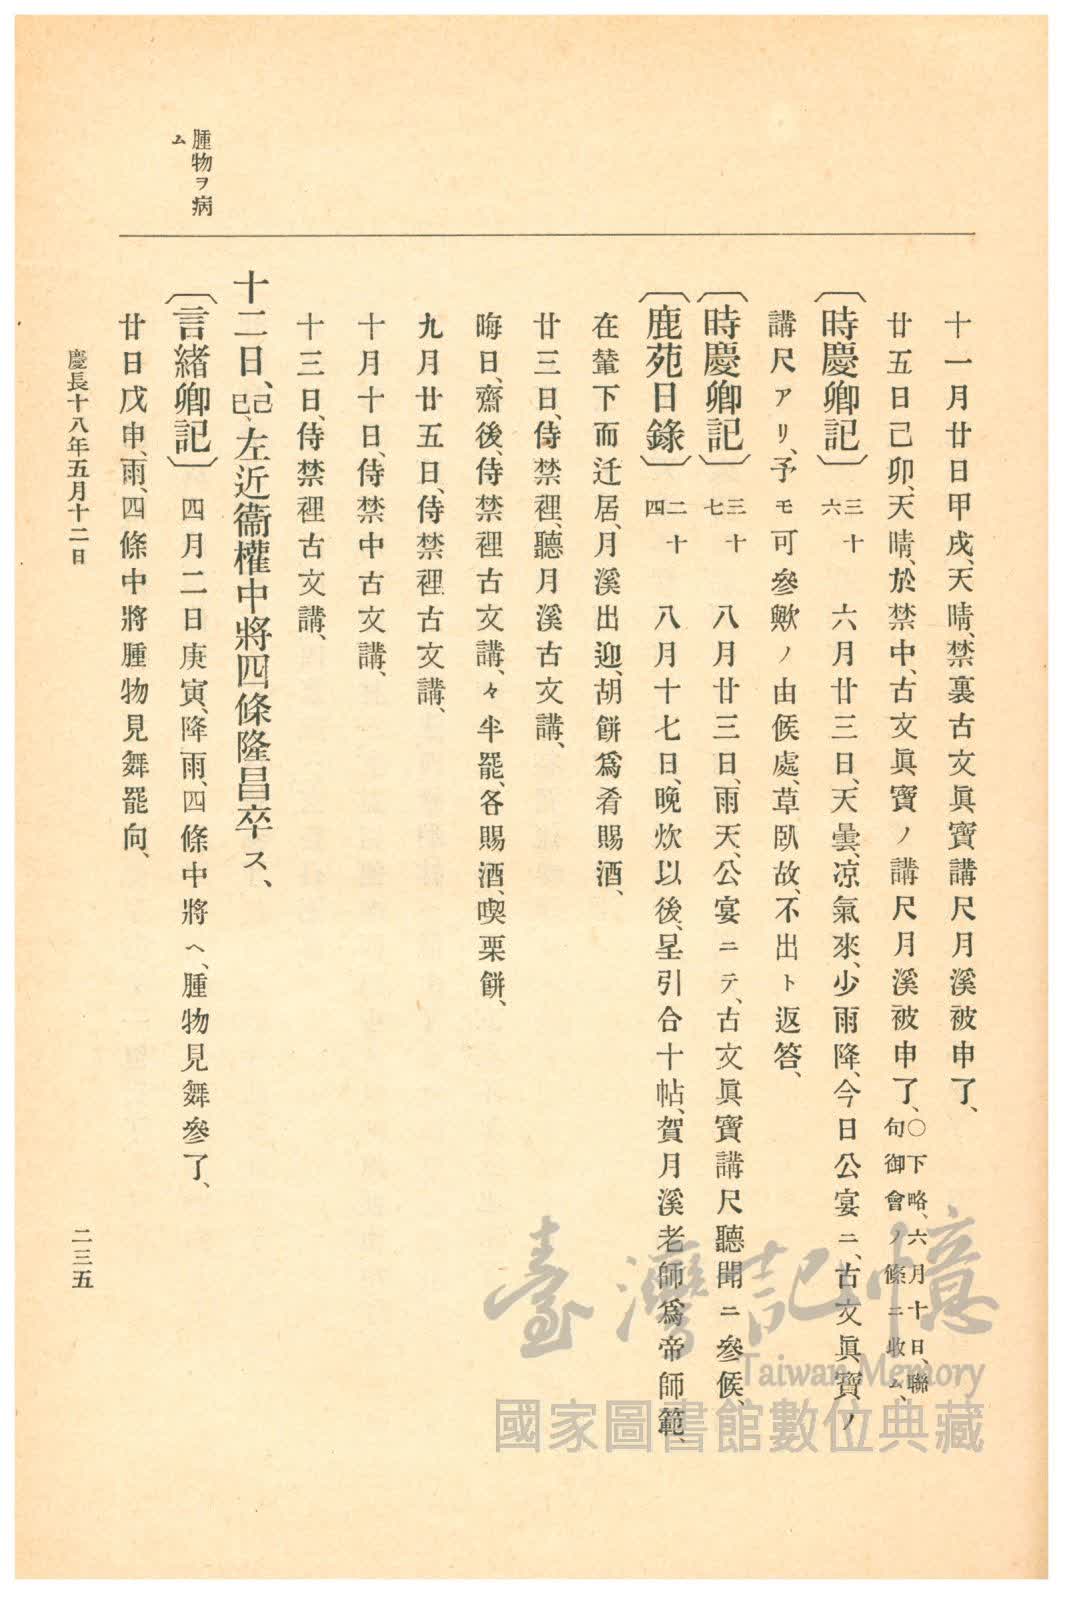 腫物ヲ病
ム
十一月廿日甲戌、天晴、禁裏古文眞寶講尺月溪被申了、
廿五日己卯、天晴、於禁中、古文眞寶ノ講尺月溪被申了、○下略、六月十日、聯
句御會ノ條ニ收ム、
〔時慶卿記〕三十六 六月廿三日、天曇、凉氣來、少雨降、今日公宴ニ、古文眞寶ノ
講尺アリ、予モ可參歟ノ由候處、草臥故、不出ト返答、
〔時慶卿記〕三十七 八月廿三日、雨天、公宴ニテ、古文眞寶講尺聽聞ニ參候、
〔鹿苑日錄〕二十四 八月十七日、晚炊以後、呈引合十帖、賀月溪老師爲帝師範、
在輦下而迁居、月溪出迎、胡餠爲肴賜酒、
廿三日、侍禁裡、聽月溪古文講、
晦日、齋後、侍禁裡古文講、々半罷、各賜酒、喫栗餠、
九月廿五日、侍禁裡古文講、
十月十日、侍禁中古文講、
十三日、侍禁裡古文講、
十二日、己巳、左近衞權中將四條隆昌卒ス、
〔言緖卿記〕 四月二日庚寅、降雨、四條中將ヘ、腫物見舞參了、
廿日戊申、雨、四條中將腫物見舞罷向、
慶長十八年五月十二日
二三五
臺灣記憶
Taiwan Memory
國家圖書館數位典藏